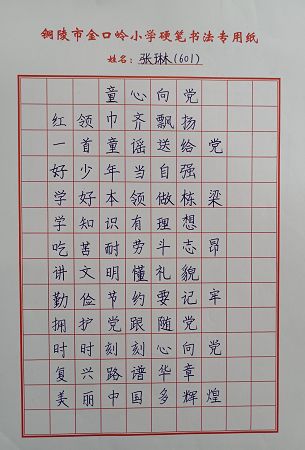 铜陵市金口岭小学硬笔书法专用纸
姓名：张琳(601)
童心向党
红领巾齐飘扬
一首童谣送给党
好少年当自强
学好本领做栋梁
学知识有理想
吃苦耐劳斗志昂
讲文明懂礼貌
勤俭节约要记牢
拥护党跟随党
时时刻刻心向党
复兴路谱华章
美丽中国多辉煌